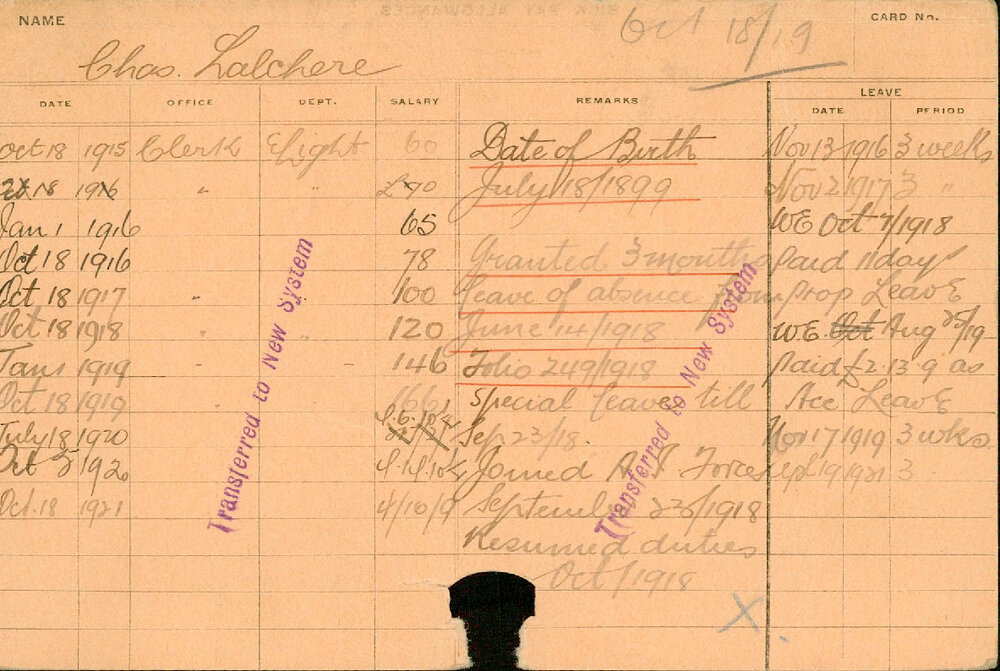 NAME
CARD No.
Oct 18/19
Chas. Lalchere
DATE OFFICE DEPT. SALARY REMARKS LEAVE
DATE PERIOD
Oct 18 1915 Clerk Elight 60 Date of Birth Nov 13 1916 3 weeks
18 1916 " " £70 July 18/1899 Nov 2 1917 3 "
Jan 1 1916 65 WE Oct 7/1918
Oct 18 1916 78 Granted 3 months paid 11 days
Oct 18 1917 " 100 leave of absence from prop Leave
Oct 18 1918 " " 120 June 14/1918 W.E. Oct Aug 25/19
Jan 1 1919 - - 146 Folio 249/1918 paid £2.13.9 as
Oct 18 1919 166 Special leave till Acc Leave
July 18 1920 Sep 23/18. Nov 17 1919 3 wks
Oct 5 1920 Joined A.I. Forces Sept 19 1921 3
Oct. 18 1921 4/10/9 September 23/1918
Resumed duties
Oct /1918
X.
Transferred to New System
Transferred to New System